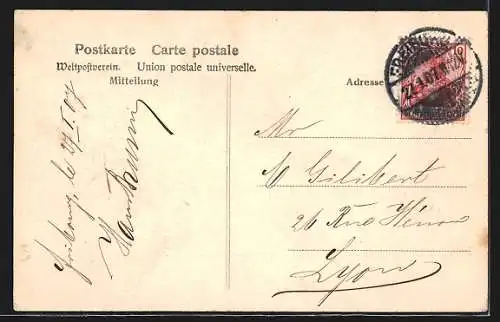 Postkarte Carte postale
Weltpostverein. Union postale universelle.
Mitteilung
Adresse
27.1.07
Fribourg, le 27 I. 07
Mr
M Gilibert
26 Rue Hénon
Lyon